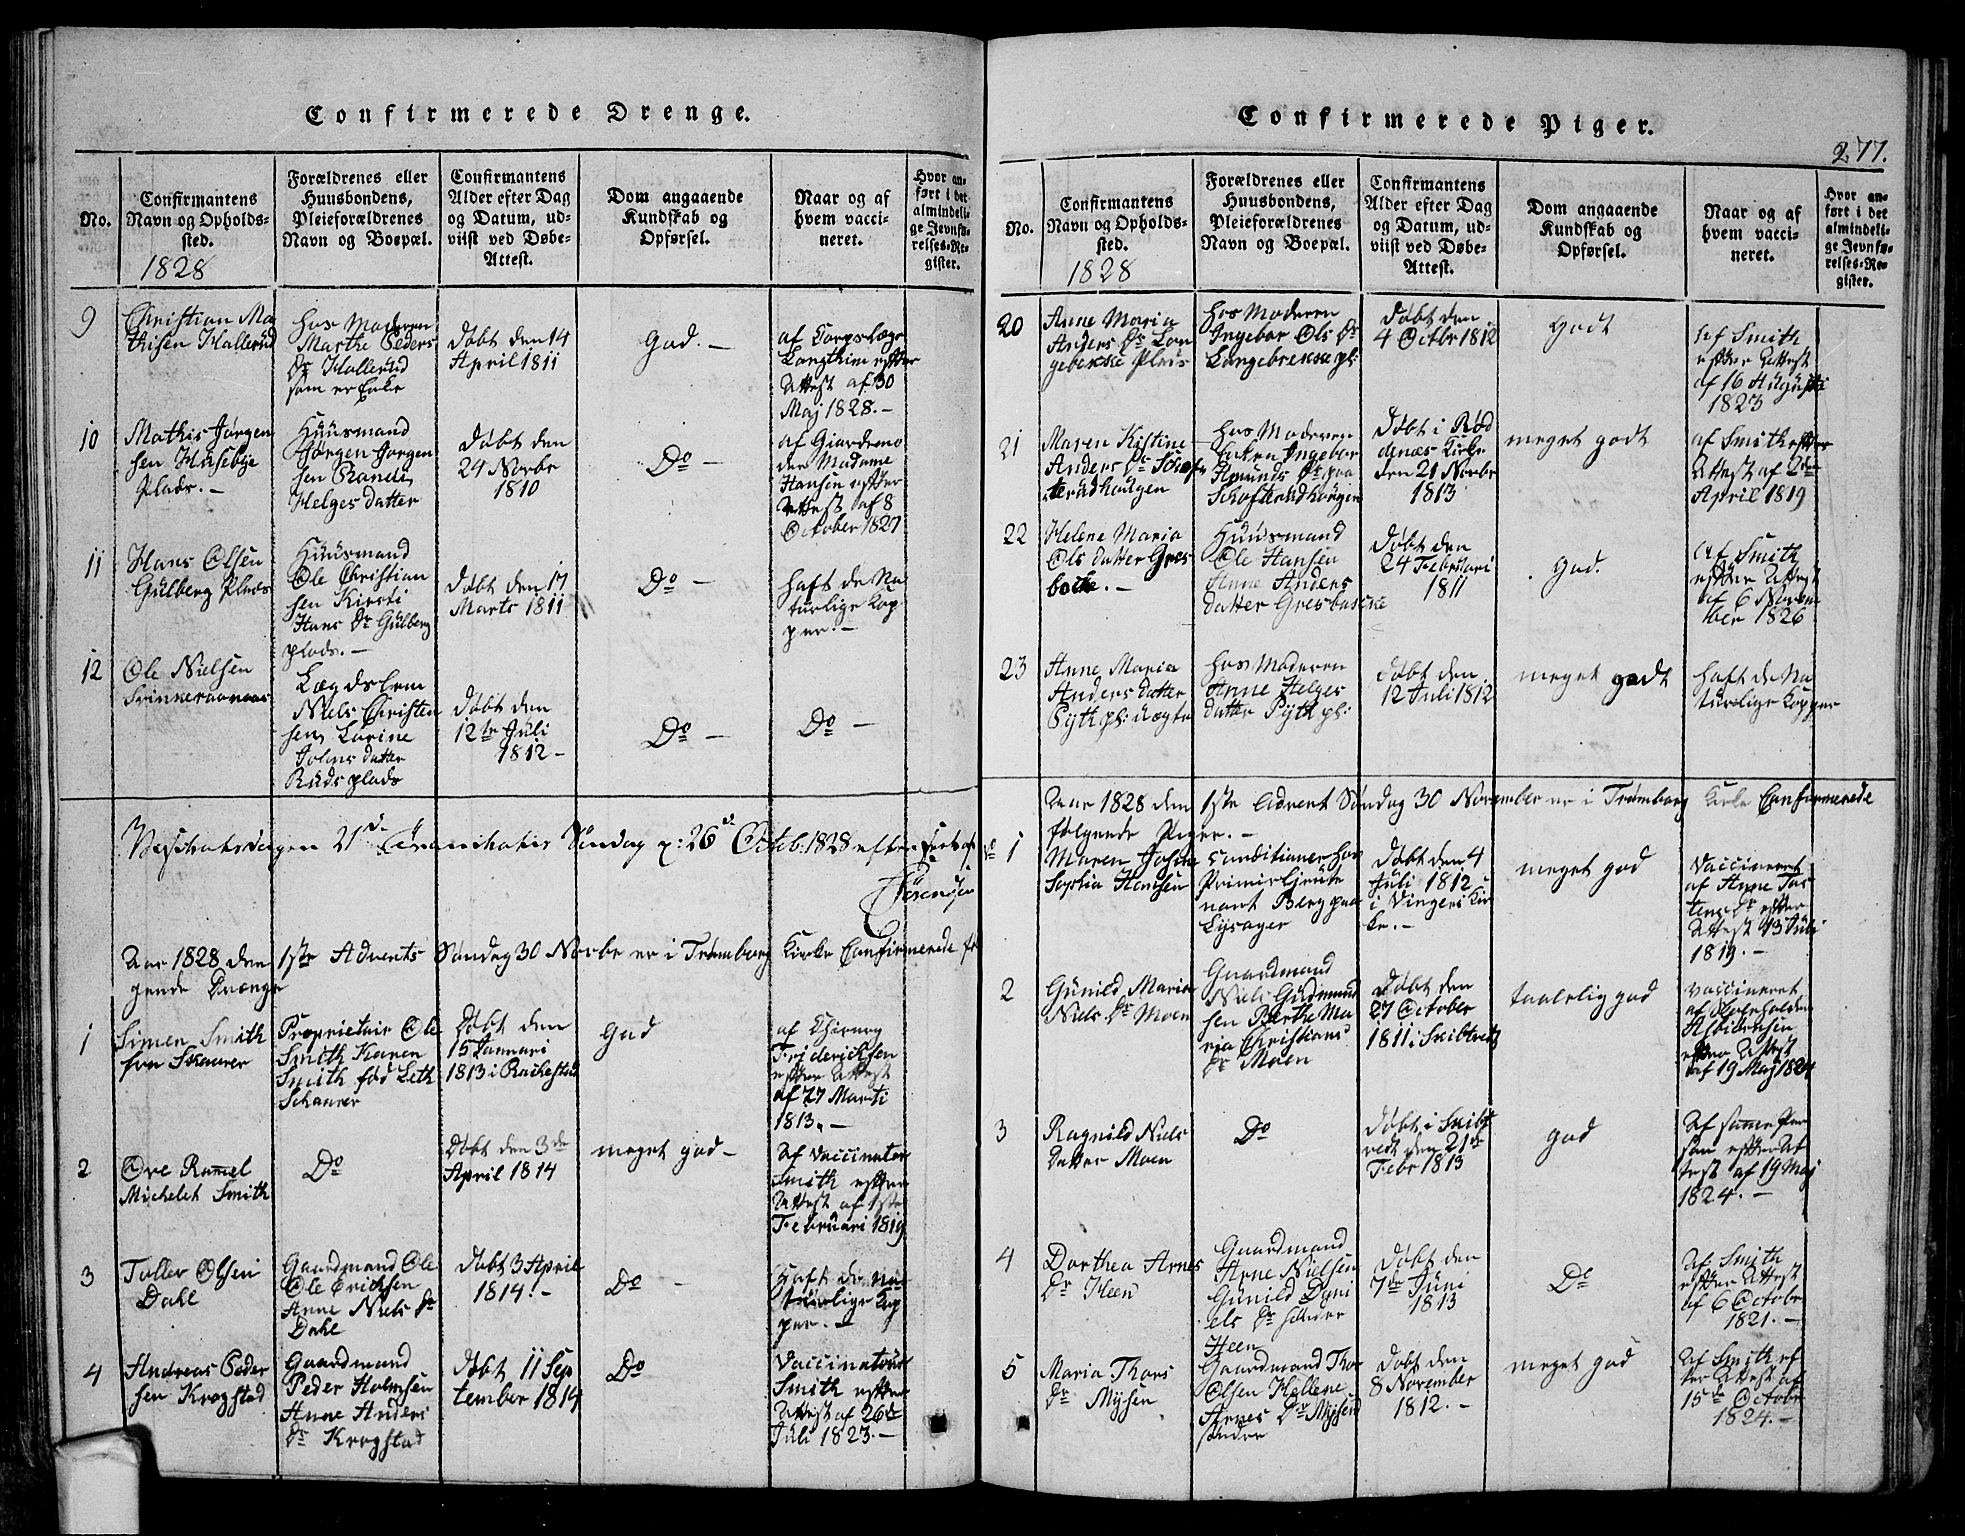 Confirmerede Drenge.
No.
Confirmantens
Navn og Opholds-
sted.
1828
Forældrenes eller
Huusbondens,
Pleieforældrenes
Navn og Boepæl.
Confirmantens
Alder efter Dag
og Datum, ud-
viist ved Døbe-
Attest.
Dom angaaende
Kundskab og
Opførsel.
Naar og af
hvem vacci-
neret.
Hvor an-
ført i det
almindeli-
ge Jevnfø-
relses-Re-
gister.
9
Christian Ma
thisen Hallerud
hos Moderen
Marthe Peders
Dr Hallerud
som er Enke
Døbt den 14
April 1811
God. -
af Corpslæge
Langthim efter
Attest af 30
Maj 1828. -
10
Mathis Jørgen
sen Husebye
Plads. -
Huusmand
Jørgen Jørgen
sen Randi
Helges datter
Døbt den
24 Novbr
1810
Do -
af Giordemo
der Madame
Hansen efter
Attest af 8
October 1827
11
Hans Olsen
Gulberg Plads
Huusmand
Ole Christian
sen Kirsti
Hans Dr Gulberg
plads. -
Døbt den 17
Marts 1811
Do -
haft de Na
turlige Kop
per. -
12
Ole Nielsen
Lægdslem
Niels Christen
sen Karine
Johns datter
Ruds plads
Døbt den
12te Juli
1812 -
Do -
Do -
21de Søndag 26de Octob. 1828 efter
Sørensen
Aar 1828 den 1ste Advents Søndag 30 Novbr er i Trømborg Kirke Confirmerede føl
gende Drænge
1
Simen Smith
Proprietair Ole
Smith Karen
Smith fød Leth
Schaurer
Døbt den
15 Januari
1813 i Rachestad
God
af Chirurg
Friderichsen
efter Attest
af 27 Marti
1813. -
2
Ove Ramel
Michelet Smith
Do
Døbt den 3de
April 1814
meget god -
Af Vaccinatør
Smith efter
Attest af 1ste
Februari 1819
3
Toller Olsen
Dahl
Gaardmand Ole
Ole Erichsen
Anne Niels Dr
Dahl
Døbt 3 April
1814. -
Do -
Haft de na
turlige Kop
per. -
4
Andreas Peder
sen Krogstad
Gaardmand
Peder Holmsen
Anne Anders
Dr Krogstad
Døbt 11 Sep
tember 1814
Do
Vaccinatør
Smith efter
Attest af 26de
Juli 1823. -
Confirmerede Piger.
277.
No.
Confirmantens
Navn og Opholds-
sted.
1828
Forældrenes eller
Huusbondens,
Pleieforældrenes
Navn og Boepæl.
Confirmantens
Alder efter Dag
og Datum, ud-
viist ved Døbe-
Attest.
Dom angaaende
Kundskab og
Opførsel.
Naar og af
hvem vacci-
neret.
Hvor an-
ført i det
almindeli-
ge Jevnfø-
relses-Re-
gister.
20
Anne Maria
Anders Dr Lan
gebekke Plads
hos Moderen
Ingebor Ols Dr
Langebrekke pl:
Døbt den
4 Octbr 1812
Godt
Af Smith
efter Attest
af 16 Augusti
1823
21
Maren Kistine
Anders Dr Schof
terudhougen
hos Moderen
Enken Ingebor
Amunds Dr paa
Schofterudhougen
Døbt i Rød
denæs Kirke
den 21 Novbr
1813
meget godt
af Smith efter
Attest af 2den
April 1819
22
Helene Maria
Ols datter Gres
Huusmand
Ole Hansen
Anne Anders
datter
Døbt den
24 Februari
1811
God.
Af Smith
efter Attest
af 6 Novem
ber 1826
23
Anne Maria
Anders datter
Pyth pl:
hos Moderen
Anne Helges
datter Pyth pl:
Døbt den
12 Juli 1812
meget godt
haft de Na
turlige Kopper
Aar 1828 den 1ste Advent Søndag 30 November er i Trømborg Kirke Confirmerede
følgende Piger. -
1
Maren Josine
Sophia Hansen
Conditioner hos
Primierlieute
nant Berg paa
Lysager
Døbt den 4
Juli 1812
i Vingers Kir
ke. -
meget god
Vaccineret
af Anne Tos
tens Dr efter
Attest 13 Juli
1819. -
2
Gunild Maria
Niels Dr Moen
Gaardmand
Niels Gudmund
sen Berthe Ma
ria Christians
Dr Moen
Døbt den
27 October
1811 i Snibtvedt
taalelig god
vaccineret
af
efter Attest
af 19 Maj 1824
3
Ragnild Niels
datter Moen
Do
Døbt i Snibt
vedt den 21de
Febr 1813
god
Af samme Per
son efter At
test af 19 Maj
1824. -
4
Dorthea Arnes
Dr Heen
Gaardmand
Arne Nielsen
Gunild Dyni
els Dr søndre
Heen
Døbt den
7de Juni
1813
Do
Af Smith
efter Attest
af 6 Octobr
1821. -
5
Maria Thors
Dr Mysen
Gaardmand Thor
Olsen Hellene
Arnes Dr Mysen
søndre
Døbt den
8 November
1812. -
meget god
Af Smith ef
ter Attest af
15de Octobr
1824. -